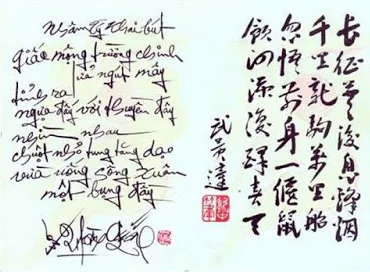 Nhâm Tý khai bút
giấc mộng trường chinh
ngút mây
tỉnh ra
ngựa đấy với thuyền đây
nhìn nhau
chuột nhỏ tung tăng dạo
vừa uống sông Xuân
một bụng đầy
長征夢後息烽烟
千里龍駒萬里船
忽悟前身一個鼠
河深春天
武